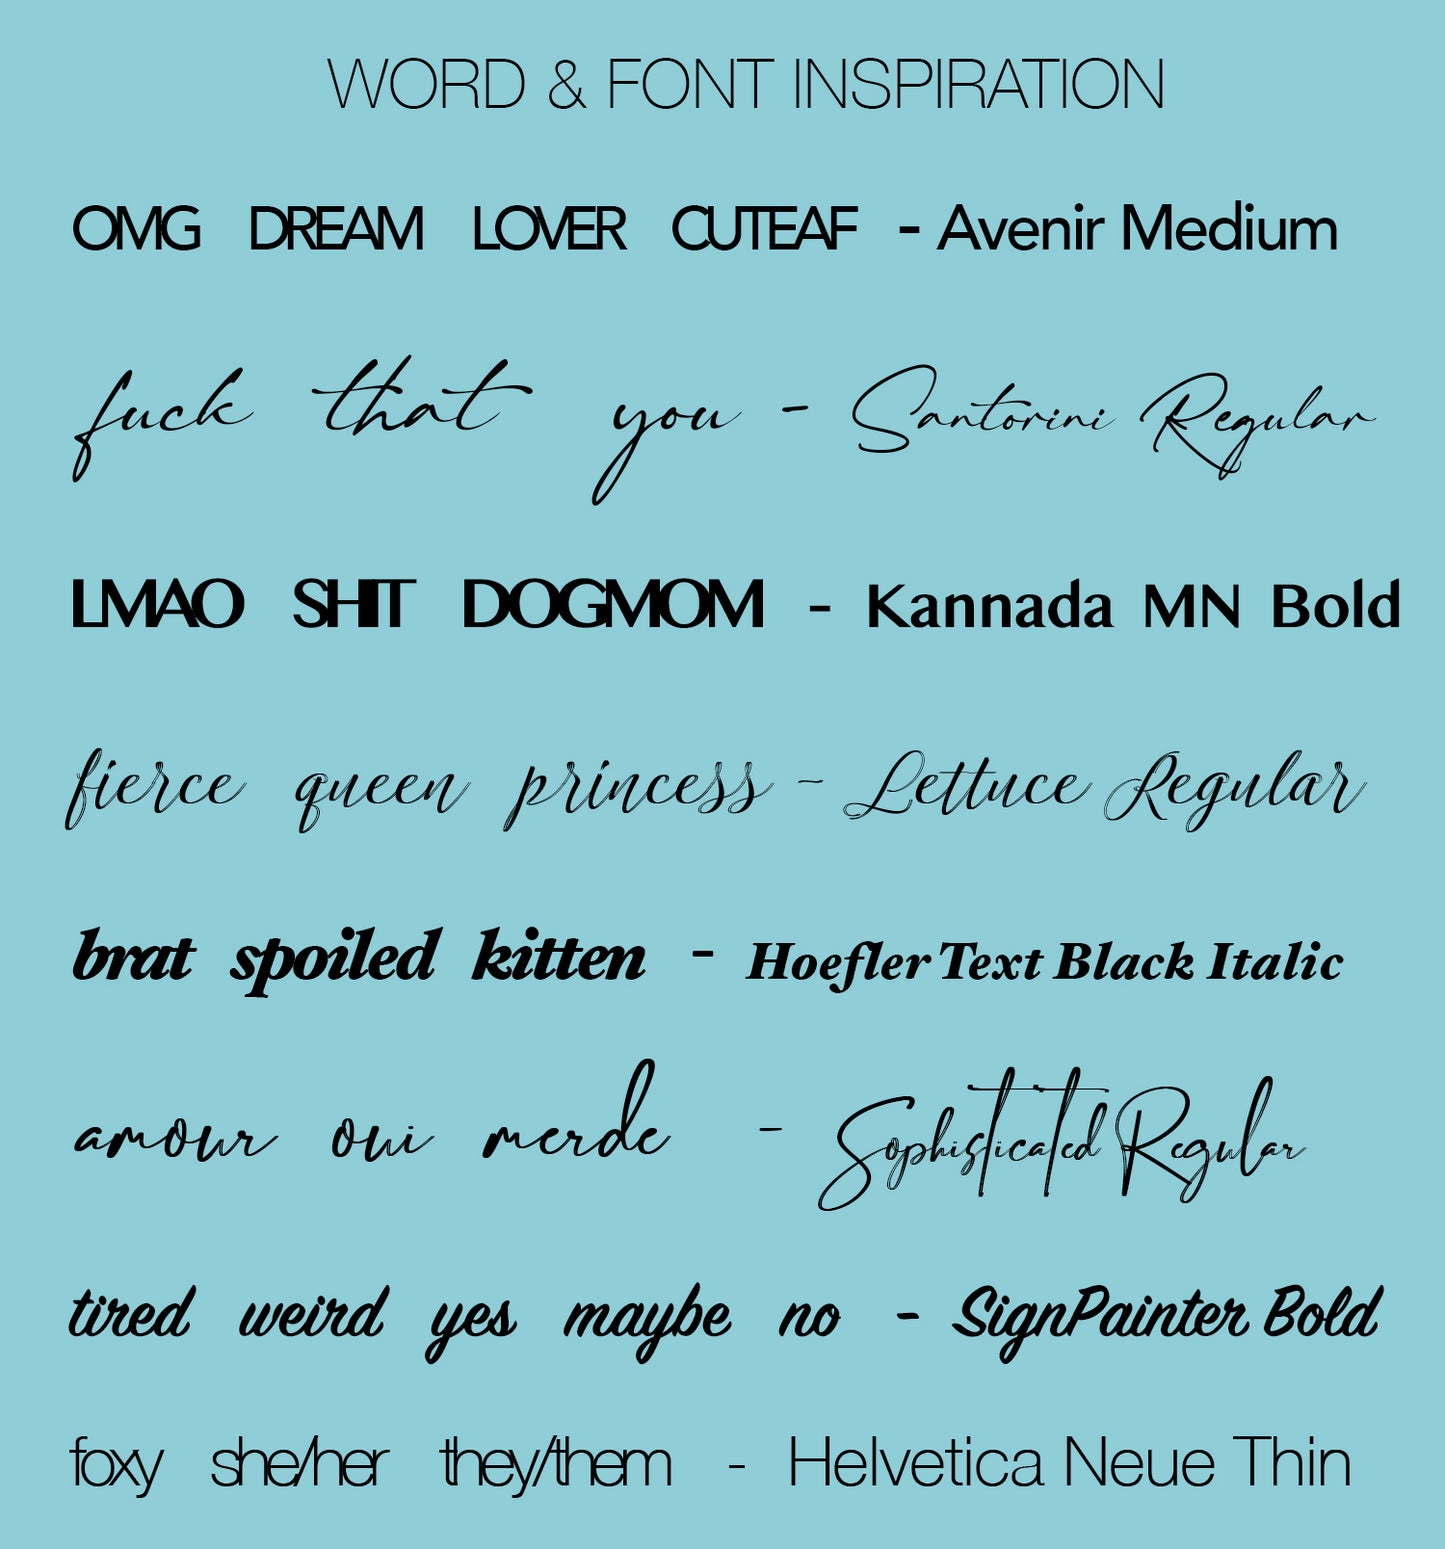 WORD & FONT INSPIRATION
OMG DREAM LOVER CUTEAF - Avenir Medium
fuck that you - Santorini Regular
LMAO SHIT DOGMOM - Kannada MN Bold
fierce queen princess - Lettuce Regular
brat spoiled kitten - Hoefler Text Black Italic
amour oui merde - Sophisticated Regular
tired weird yes maybe no - SignPainter Bold
foxy she/her they/them - Helvetica Neue Thin